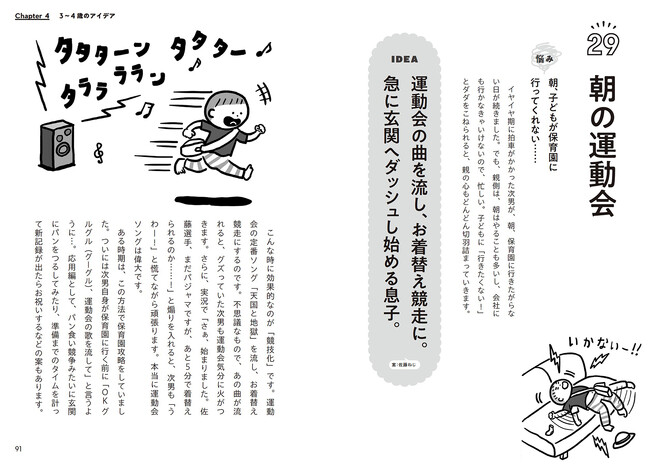 29
朝の運動会
悩み
朝、子どもが保育園に
行ってくれない……
イヤイヤ期に拍車がかかった次男が、朝、保育園に行きたがらな
い日が続きました。でも、親側は、朝はやることも多いし、会社に
も行かなきゃいけないので、忙しい。子どもに「行きたくない！」
とダダをこねられると、親の心もどんどん切羽詰まっていきます。
いかない～!!
IDEA
運動会の曲を流し、お着替え競走に。
急に玄関へダッシュし始める息子。
案：佐藤ねじ
Chapter 4 3～4歳のアイデア
タタタターン タタタター
タララ ラララン
こんな時に効果的なのが「競技化」です。運動
会の定番ソング「天国と地獄」を流し、お着替え
競走にするのです。不思議なもので、あの曲が流
れると、グズっていた次男も運動会気分に火がつ
きます。さらに、実況で「さぁ、始まりました。佐
藤選手、まだパジャマですが、あと5分で着替え
られるのか……！」と煽りを入れると、次男も「う
わー！」と慌てながら頑張ります。本当に運動会
ソングは偉大です。
ある時期は、この方法で保育園攻略をしていまし
た。ついには次男自身が保育園に行く前に「OKグ
ルグル（グーグル）、運動会の歌を流して」と言うよ
うに…。応用編として、パン食い競争みたいに玄関
にパンをつるしてみたり、準備までのタイムを計っ
て新記録が出たらお祝いするなどの案もあります。
91